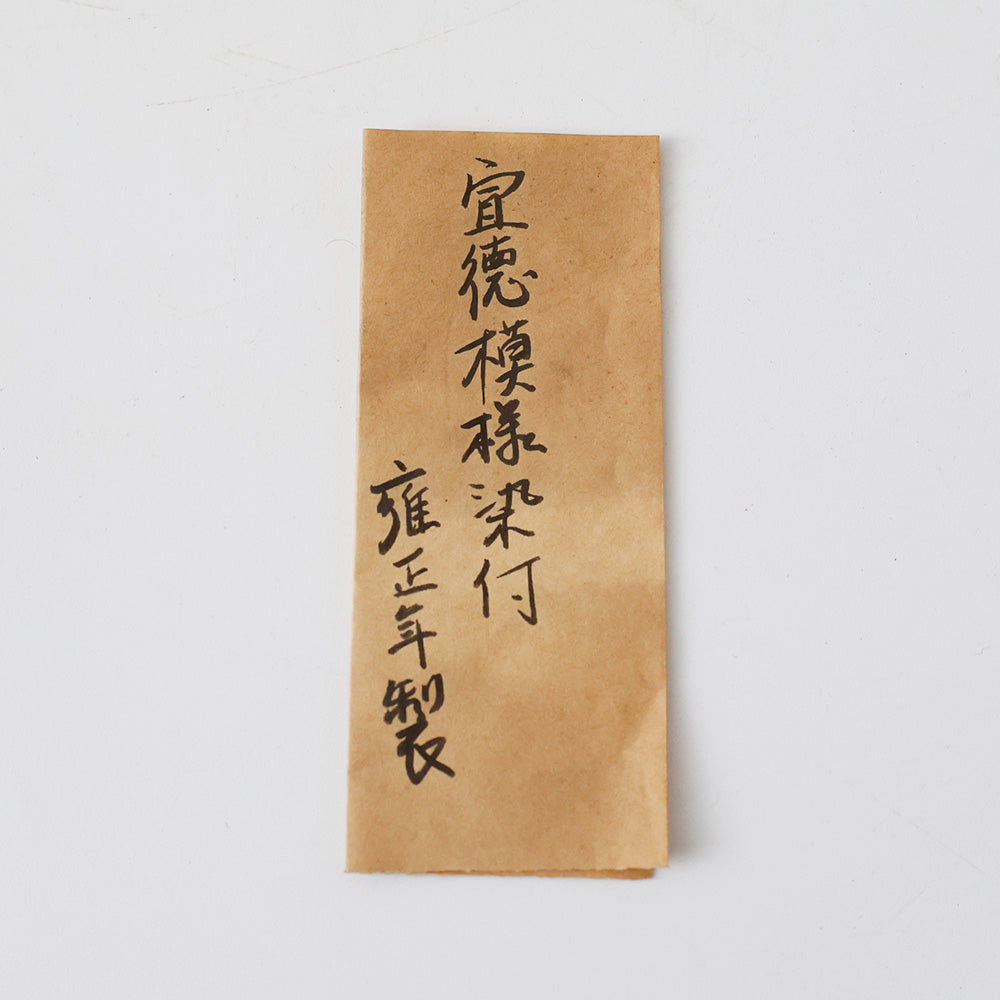 宣德模様染付
雍正年製